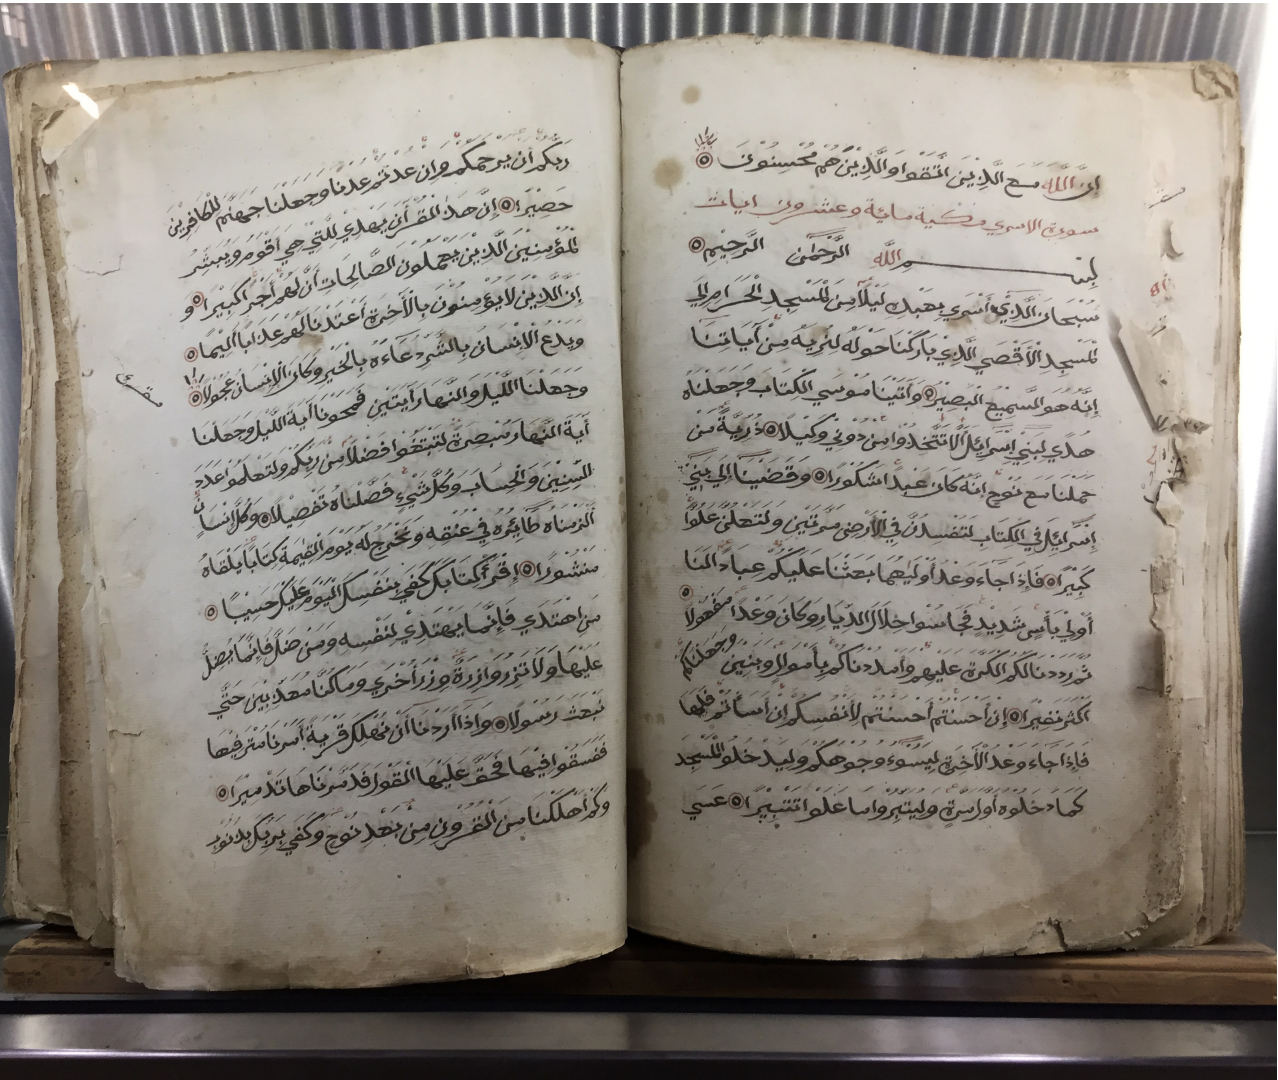 إن الله مع الذين اتقوا والذين هم محسنون
سورة الاسري مكية ماية وعشرون ايات
بسم الله الرحمن الرحيم
سبحان الذي أسري بعبده ليلا من المسجد الحرام إلي
المسجد الأقصي الذي باركنا حوله لنريه من آياتنا
إنه هو السميع البصير وآتينا موسي الكتاب وجعلناه
هدي لبني إسرائل ألا تتخذوا من دوني وكيلا ذرية من
حملنا مع نوح إنه كان عبدا شكورا وقضينا إلي بني
إسرائل في الكتاب لتفسدن في الأرض مرتين ولتعلن علوا
كبيرا فإذا جاء وعد أوليهما بعثنا عليكم عبادا لنا
أولي بأس شديد فجاسوا خلال الديار وكان وعدا مفعولا
ثم رددنا لكم الكرة عليهم وأمددناكم بأموال وبنين وجعلناكم
أكثر نفيرا إن أحسنتم أحسنتم لأنفسكم إن أسأتم فلها
فإذا جاء وعد الآخرة ليسوءو وجوهكم وليدخلو المسجد
كما دخلوه أول مرة وليتبروا ما علو اتتبيرا عسي
ربكم أن يرحمكم وإن عدتم عدنا وجعلنا جهنم للكافرين
حصيرا إن هذا القرآن يهدي للتي هي أقوم ويبشر
المؤمنين الذين يعملون الصالحات أن لهم أجرا كبيرا و
إن الذين لا يؤمنون بالآخرة أعتدنا لهم عذابا أليما
ويدع الإنسان بالشر دعاءه بالخير وكان الإنسان عجولا
وجعلنا الليل والنهار آيتين فمحونا آية الليل وجعلنا
آية النهار مبصرة لتبتغوا فضلا من ربكم ولتعلموا عدد
السنين والحساب وكل شيء فصلناه تفصيلا وكل إنسان
ألزمناه طائره في عنقه ونخرج له يوم القيمة كتابا يلقاه
منشورا إقرأ كتابك كفي بنفسك اليوم عليك حسيبا
من اهتدي فإنما يهتدي لنفسه ومن ضل فإنما يضل
عليها ولا تزر وازرة وزر أخري وما كنا معذبين حتي
نبعث رسولا وإذا أردنا أن نهلك قرية أمرنا مترفيها
ففسقوا فيها فحق عليها القول فدمرناها تدميرا
وكم أهلكنا من القرون من بعد نوح وكفي بربك بذنوب